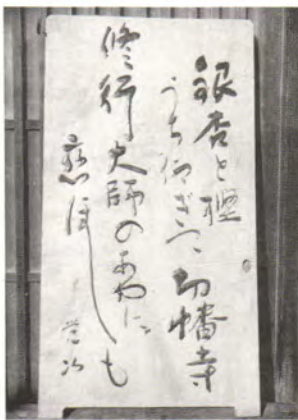 銀杏と樫
うち仰ぎつゝ切幡寺
修行大師のあやに
戀ほしも